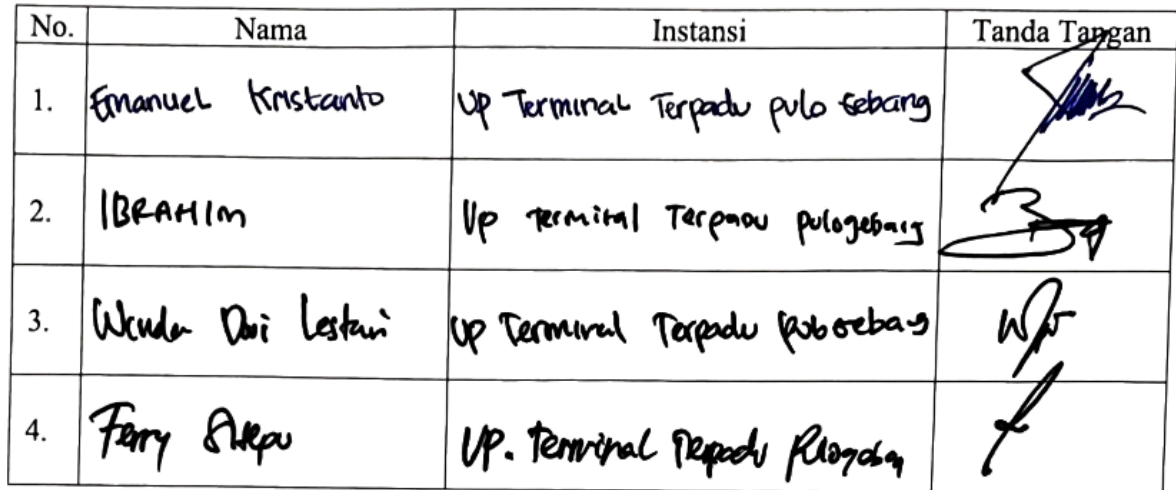 No. Nama Instansi Tanda Tangan
1. Emanuel Kristanto UP Terminal Terpadu pulo Gebang
2. IBRAHIM Up Terminal Terpadu pulogebang
3. Wanda Dwi Lestari UP Terminal Terpadu pulogebang
4. Ferry UP. Terminal Terpadu Pulogebang